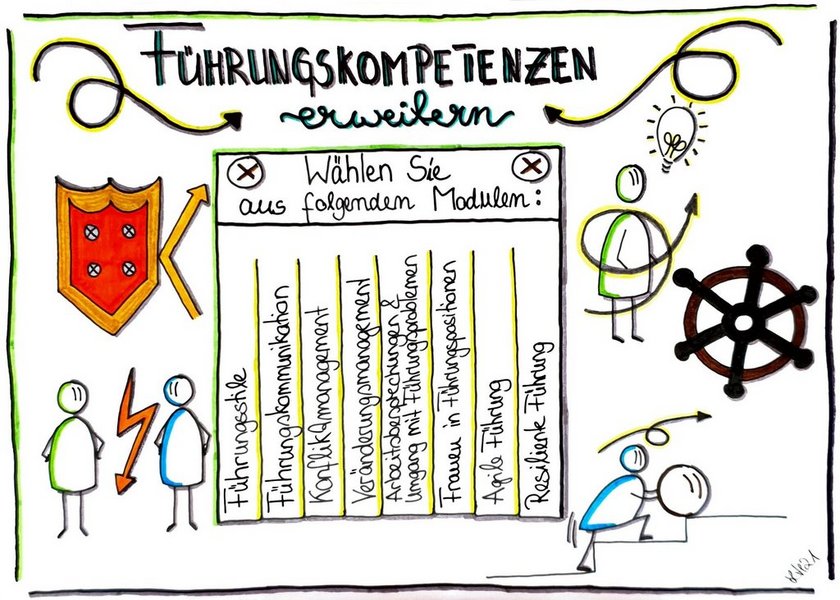 FÜHRUNGSKOMPETENZEN
erweitern
Wählen Sie
aus folgenden Modulen:
Führungsstile
Führungskommunikation
Konfliktmanagement
Veränderungsmanagement
Arbeitsbesprechungen &
Umgang mit Führungsproblemen
Frauen in Führungspositionen
Agile Führung
Resiliente Führung